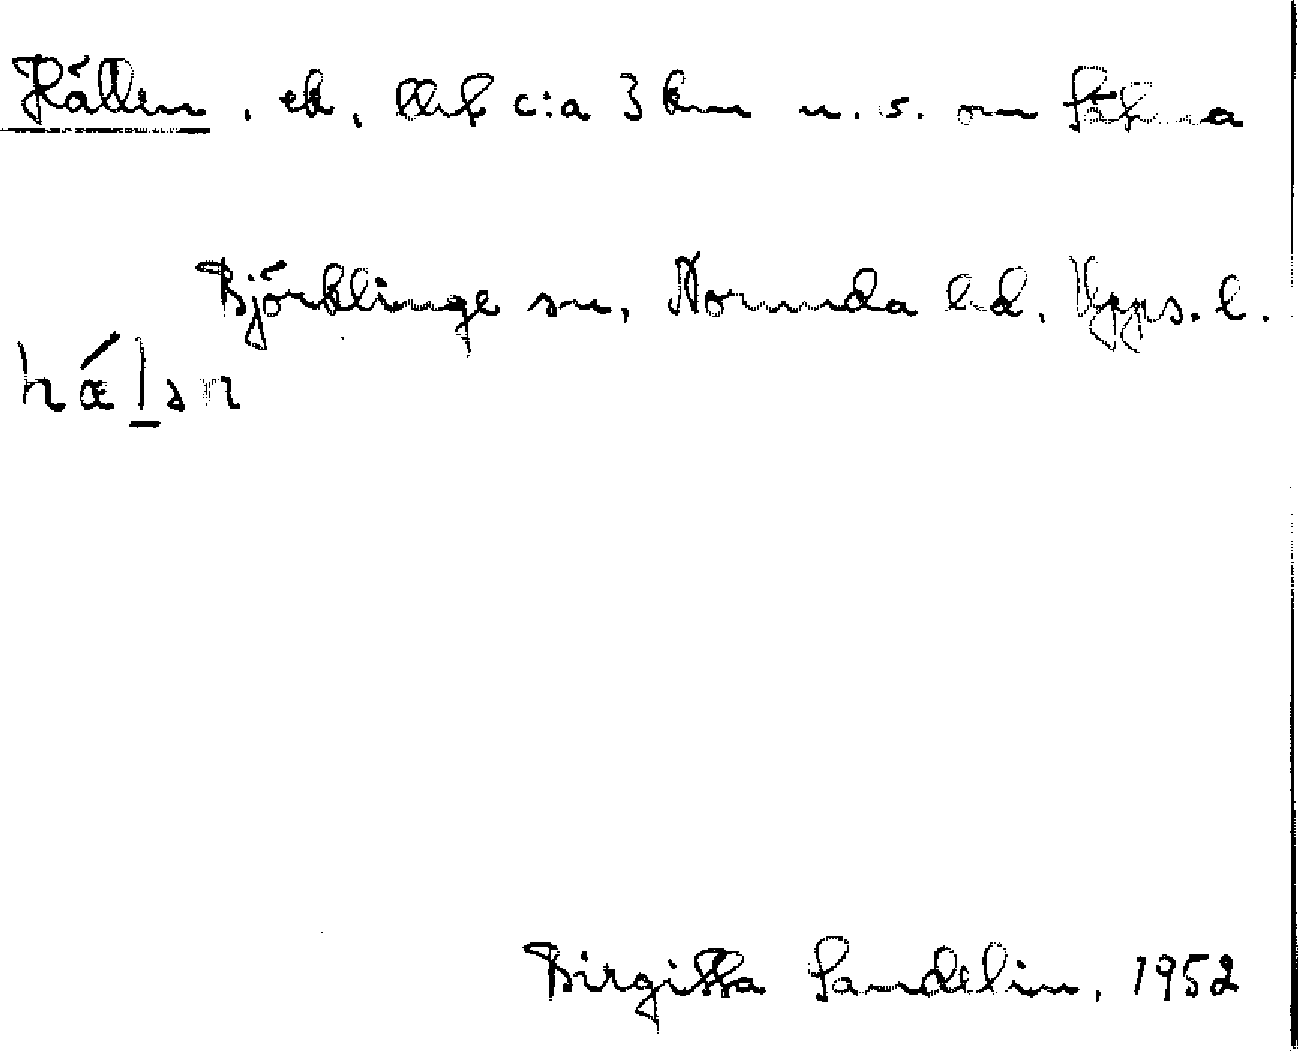 Hällen, ek, ttrl c:a 3 km n. s. om Sätuna
Björklinge sn, Norunda hd. Upps. l.
hǽlən
Birgitta Sandelin, 1952